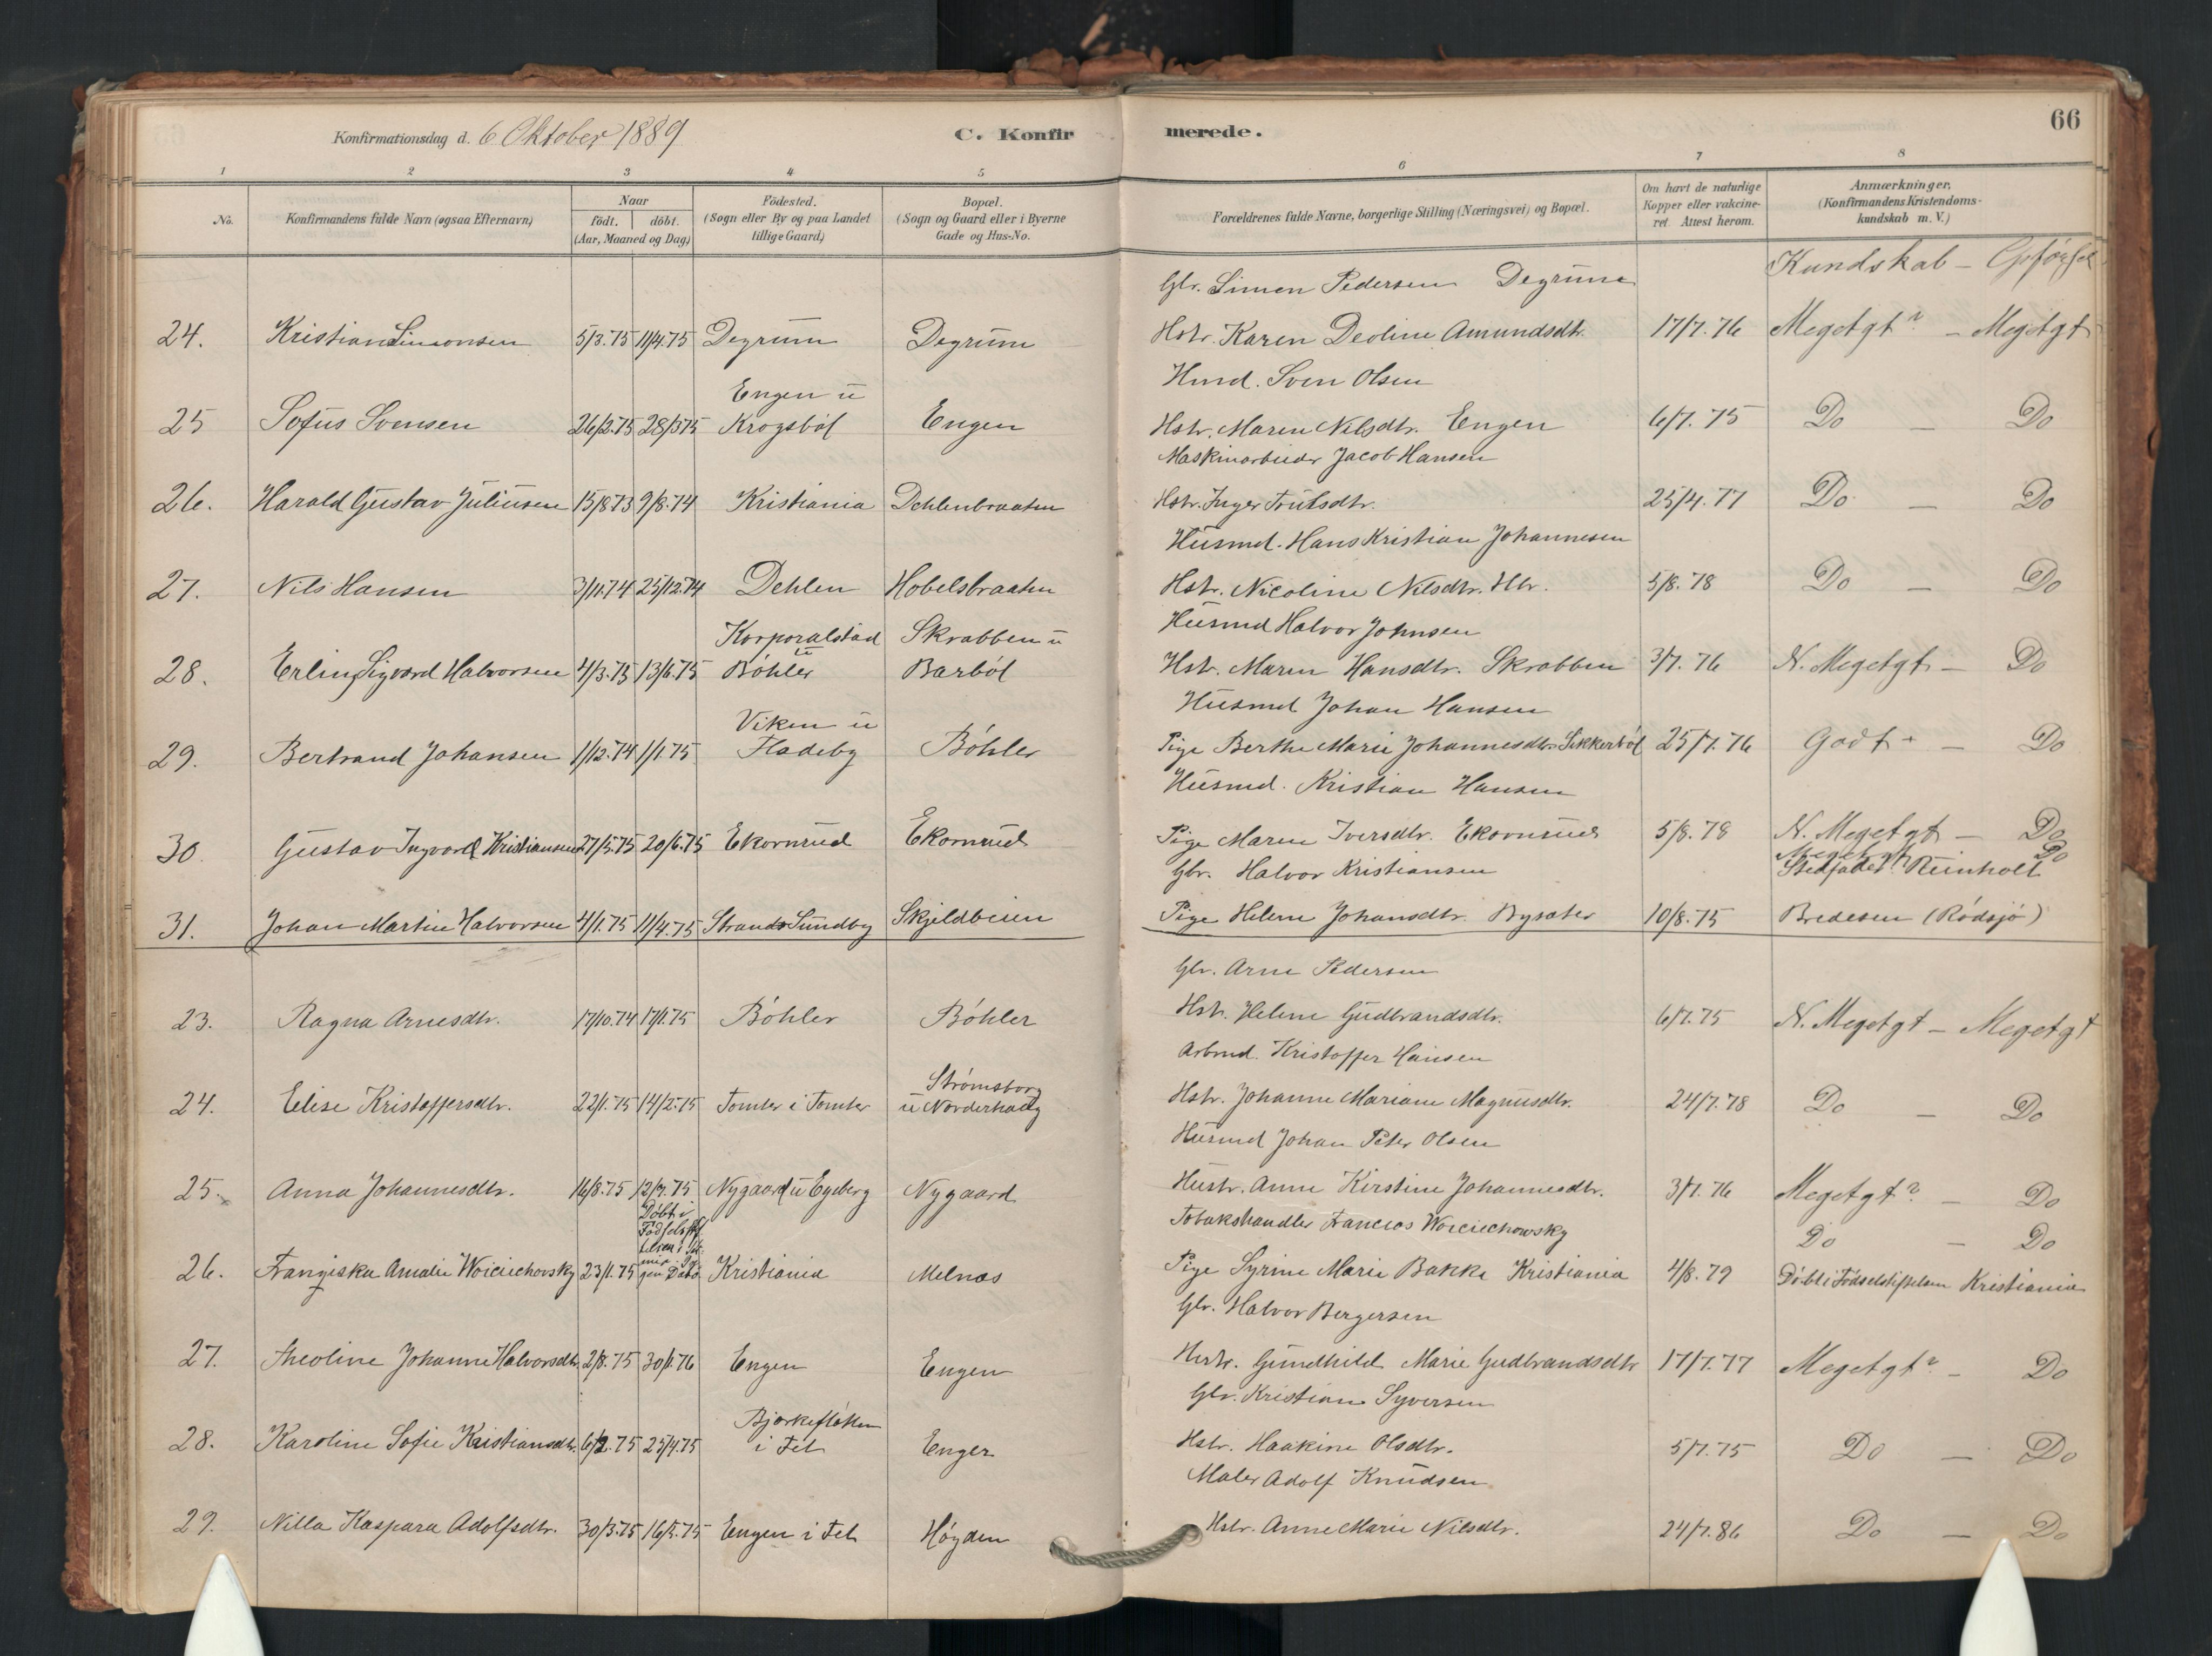 Konfirmationsdag d. 6 Oktober 1889
C. Konfir
merede.
66
1 2 3 4 5 6 7 8
No.
Konfirmandens fulde Navn (ogsaa Efternavn)
Naar
födt. döbt.
(Aar, Maaned og Dag)
Födested.
(Sogn eller By og paa Landet
tillige Gaard)
Bopæl.
(Sogn og Gaard eller i Byerne
Gade og Hus-No.
Forældrenes fulde Navne, borgerlige Stilling (Næringsvei) og Bopæl.
Om havt de naturlige
Kopper eller vakcine-
ret Attest herom.
Anmærkninger,
(Konfirmandens Kristendoms-
kundskab m. V.)
Kundskab – Opførsel
Gbr. Simen Pedersen Degrum
24. Kristian Simonsen 5/3.75 11/4.75 Degrum Degrum Hstr. Karen Deoline Amundsdtr. 17/7.76 Megetgt? – Megetgt
Engen u Husmd. Sven Olsen
25 Sofus Svensen 26/2.75 28/3 75 Krogsböl Engen Hstr. Maren Nilsdtr. Engen 6/7.75 Do – Do
Maskinarbeider Jacob Hansen
26. Harald Gustav Juliusen 15/8 73 9/8.74 Kristiania Dehlenbraaten Hstr. Inger Trulsdtr. 25/4.77 Do – Do
Husmd. Hans Kristian Johannesen
27. Nils Hansen 3/11.74 25/12.74 Dehlen Hobelsbraaten Hstr. Nicoline Nilsdtr. Hbr. 5/8.78 Do – Do
Korporalstad Skrabben u Husmd Halvor Johnsen
28. Erling Sigvard Halvorsen 4/3.75 13/6.75 u Böhler Barböl Hst. Maren Hansdtr. Skrabben 3/7.76 N. Megetgt – Do
Viken u Husmd Johan Hansen
29. Bertrand Johansen 1/12.74 1/1.75 Fladeby Böhler Pige Berthe Marie Johannesdtr. Sikkerböl 25/7.76 Godt + – Do
Husmd. Kristian Hansen
30. Gustav Ingvard Kristiansen 27/5.75 20/6.75 Ekornrud Ekornrud Pige Maren Iversdtr. Ekornrud 5/8.78 N. Megetgt – Do
Megetgt Do
Gbr. Halvor Kristiansen Stedfader: Reinholt
31. Johan Martin Halvorsen 4/1.75 11/4.75 Strands Sundby Skjeldbeien Pige Helene Johansdtr. Bysæter 10/8.75 Bredesen (Rödsjö)
Gbr. Arne Pedersen
23. Ragna Arnesdtr. 17/10.74 17/1.75 Böhler Böhler Hstr. Helene Gudbrandsdtr. 6/7.75 N. Megetgt – Megetgt
Strömsborg Arbmd. Kristoffer Hansen
24. Elise Kristoffersdtr. 22/1.75 14/2.75 Tomter i Tomter u Norderhaug Hstr. Johanne Mariane Magnusdtr. 24/7.78 Do – Do
Husmd Johan Peter Olsen
25. Anna Johannesdtr. 16/8.75 12/9.75 Nygaard u Egeberg Nygaard Hustr. Anne Kirstine Johannesdtr. 3/7.76 Megetgt? – Do
Döbt i Tobakshandler Francios Woiciechowsky Do – Do
26. Franziska Amalie Woiciechovsky 23/1.75 Kristiania Melnæs Pige Syrine Marie Bakke Kristiania 4/8.79 Döbt i Födselstiftelsen Kristiania
Gbr. Halvor Bergersen
27. Theoline Johanne Halvorsdtr. 2/8.75 30/1.76 Engen Engen Hstr. Gundhild Marie Gudbrandsdtr 17/7.77 Megetgt? – Do
Gbr. Kristian Syversen
28. Karoline Sofie Kristiansdtr. 6/2.75 25/4.75 Bjørkeflötten i Fet Enger Hstr. Haakine Olsdtr. 5/7.75 Do – Do
Maler Adolf Knudsen
29. Nilla Kaspara Adolfsdtr. 30/3.75 16/5.75 Engen i Fet Höyden Hstr. Anne Marie Nilsdtr. 24/7.86 Do – Do